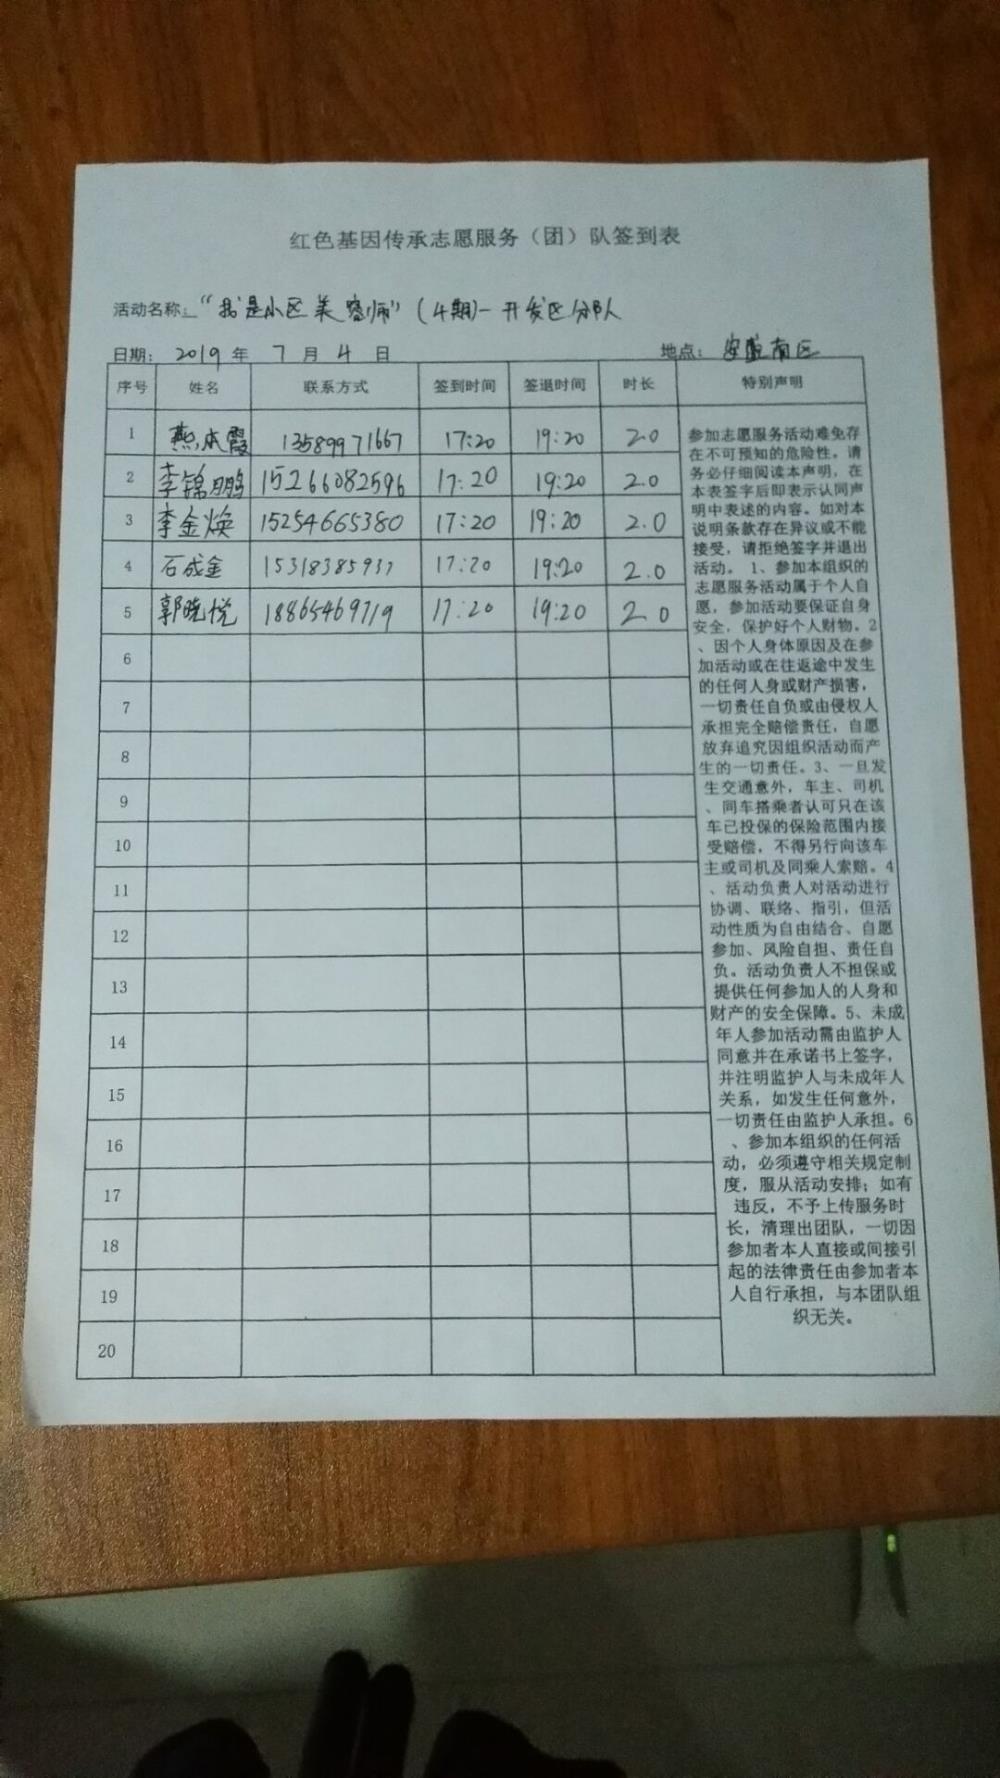 红色基因传承志愿服务（团）队签到表
活动名称：“我是小区美容师”（4期)一开发区分队
日期： 2019 年 7 月 4 日 地点： 安盛南区
序号 姓名 联系方式 签到时间 签退时间 时长 特别声明
1 燕本霞 13589971667 17:20 19:20 2.0
2 李锦鹏 15266082596 17:20 19:20 2.0
3 李金焕 15254665380 17:20 19:20 2.0
4 石成金 15318385937 17:20 19:20 2.0
5 郭晓悦 18865469719 17:20 19:20 2.0
6
7
8
9
10
11
12
13
14
15
16
17
18
19
20
参加志愿服务活动难免存
在不可预知的危险性。请
务必仔细阅读本声明，在
本表签字后即表示认同声
明中表述的内容。如对本
说明条款存在异议或不能
接受，请拒绝签字并退出
活动。 1、参加本组织的
志愿服务活动属于个人自
愿，参加活动要保证自身
安全，保护好个人财物。2
、因个人身体原因及在参
加活动或在往返途中发生
的任何人身或财产损害，
一切责任自负或由侵权人
承担完全赔偿责任，自愿
放弃追究因组织活动而产
生的一切责任。3、一旦发
生交通意外，车主、司机
、同车搭乘者认可只在该
车已投保的保险范围内接
受赔偿，不得另行向该车
主或司机及同乘人索赔。4
、活动负责人对活动进行
协调、联络、指引，但活
动性质为自由结合、自愿
参加、风险自担、责任自
负。活动负责人不担保或
提供任何参加人的人身和
财产的安全保障。5、未成
年人参加活动需由监护人
同意并在承诺书上签字，
并注明监护人与未成年人
关系，如发生任何意外，
一切责任由监护人承担。6
、参加本组织的任何活
动，必须遵守相关规定制
度，服从活动安排；如有
违反，不予上传服务时
长，清理出团队，一切因
参加者本人直接或间接引
起的法律责任由参加者本
人自行承担，与本团队组
织无关。